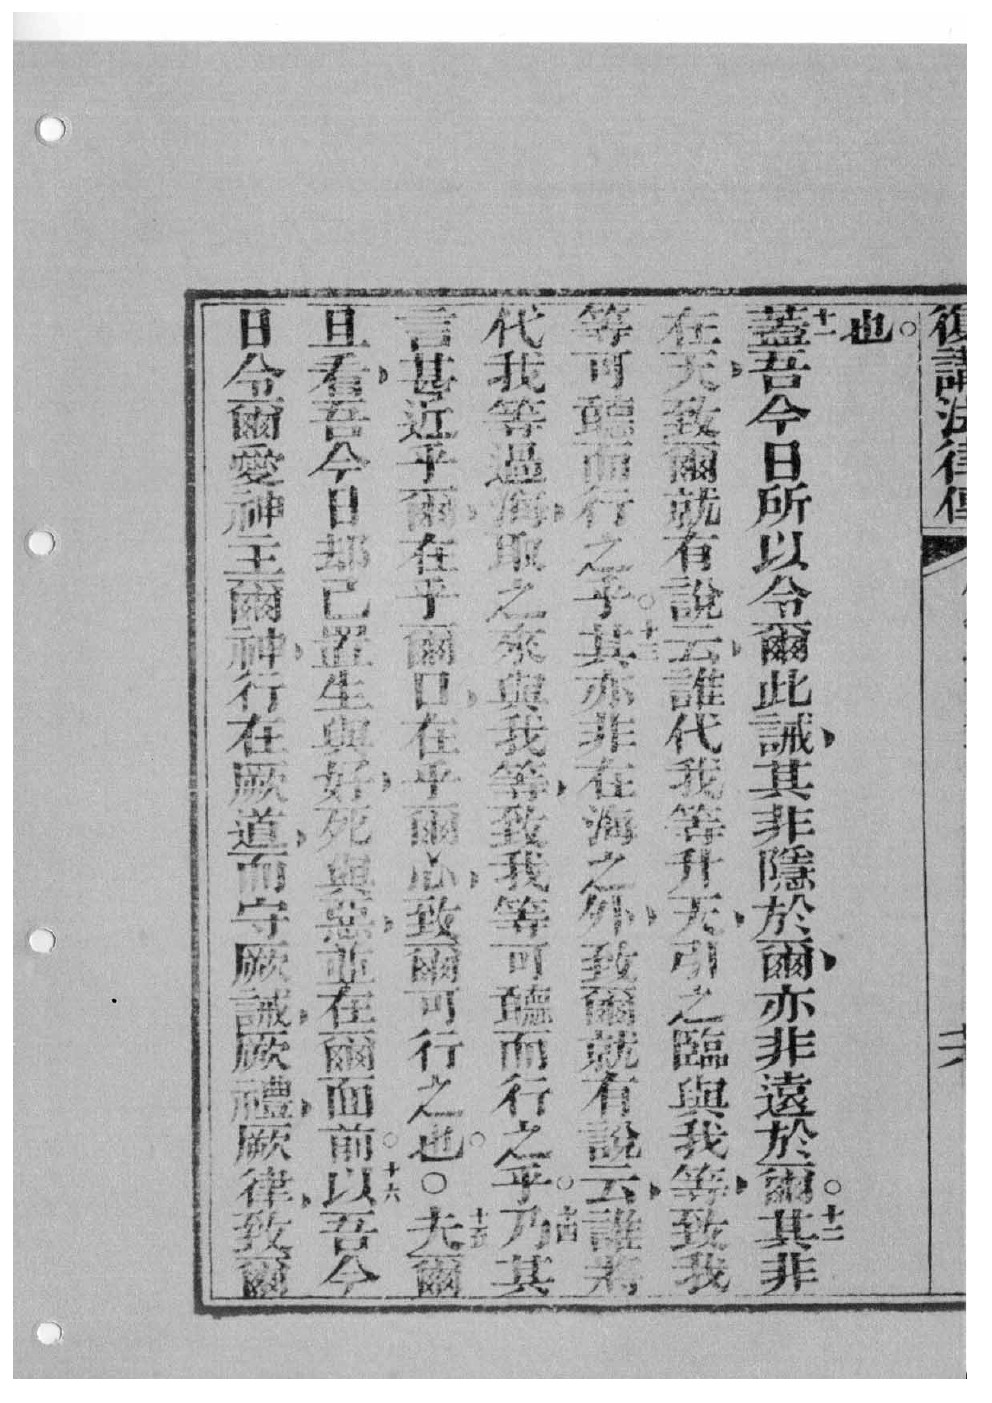 復講法律傳
六
也。
十一蓋吾今日所以令爾此誡、其非隱於爾、亦非遠於爾。十二其非
在天、致爾就有說云、誰代我等升天、引之臨與我等、致我
等可聽而行之乎。十三其亦非在海之外、致爾就有說云、誰將
代我等過海、取之來與我等、致我等可聽而行之乎。十四乃其
言甚近乎爾、在乎爾口、在乎爾心、致爾可行之也。○十五夫爾
且看、吾今日却已置生與好、死與惡、並在爾面前。十六以吾今
日令爾愛神主爾神、行在厥道、而守厥誡、厥禮、厥律、致爾